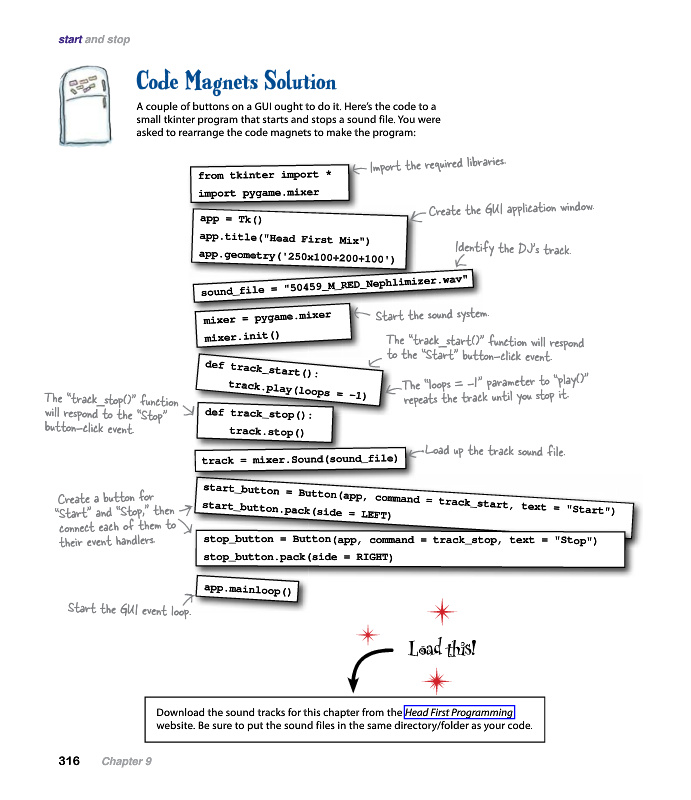 start and stop
Code Magnets Solution
A couple of buttons on a GUI ought to do it. Here's the code to a
small tkinter program that starts and stops a sound file. You were
asked to rearrange the code magnets to make the program:
from tkinter import *
import pygame.mixer
Import the required libraries.
app = Tk()
app.title("Head First Mix")
app.geometry('250x100+200+100')
Create the GUI application window.
Identify the DJ's track.
sound_file = "50459_M_RED_Nephlimizer.wav"
mixer = pygame.mixer
mixer.init()
Start the sound system.
The "track_start()" function will respond
to the "Start" button-click event.
def track_start():
track.play(loops = -1)
The "loops = -1" parameter to "play()"
repeats the track until you stop it.
The "track_stop()" function
will respond to the "Stop"
button-click event.
def track_stop():
track.stop()
track = mixer.Sound(sound_file)
Load up the track sound file.
Create a button for
"Start" and "Stop," then
connect each of them to
their event handlers.
start_button = Button(app, command = track_start, text = "Start")
start_button.pack(side = LEFT)
stop_button = Button(app, command = track_stop, text = "Stop")
stop_button.pack(side = RIGHT)
app.mainloop()
Start the GUI event loop.
Load this!
Download the sound tracks for this chapter from the Head First Programming
website. Be sure to put the sound files in the same directory/folder as your code.
316 Chapter 9